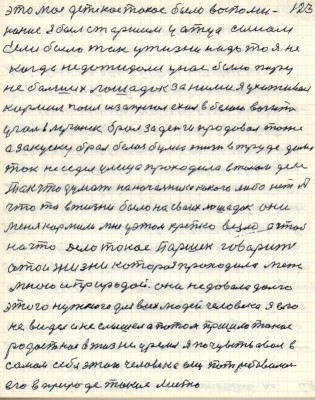 это мое детское такое было воспоми- 123
нание я был старшим у атца сыном
если было так у жизни надо то я не
когда недожидал у нас было пару
не балших лошадок за ними я ухаживал
кормил поил и запрягал ехал в возить
угаль в брал за деньги продовал тоже
а закуску брал белая булка жизнь в труде
так не сел улица проходила в таком деле
так что думат на начальника какого либо нет
что то в жизни было на своих лошадок они
меня кормили мы у этом крепко везло а чтоб
на что дело такое Паршек говарит
о той жизни котора проходила меж
мною и природой. они недовала долго
этого нужного для всех людей человека я его
не видел и не слышал а потом пришло такое
родастное в жизни время я почувствавал в
самом себя этого человека ему потребовалас
его в природе такое место